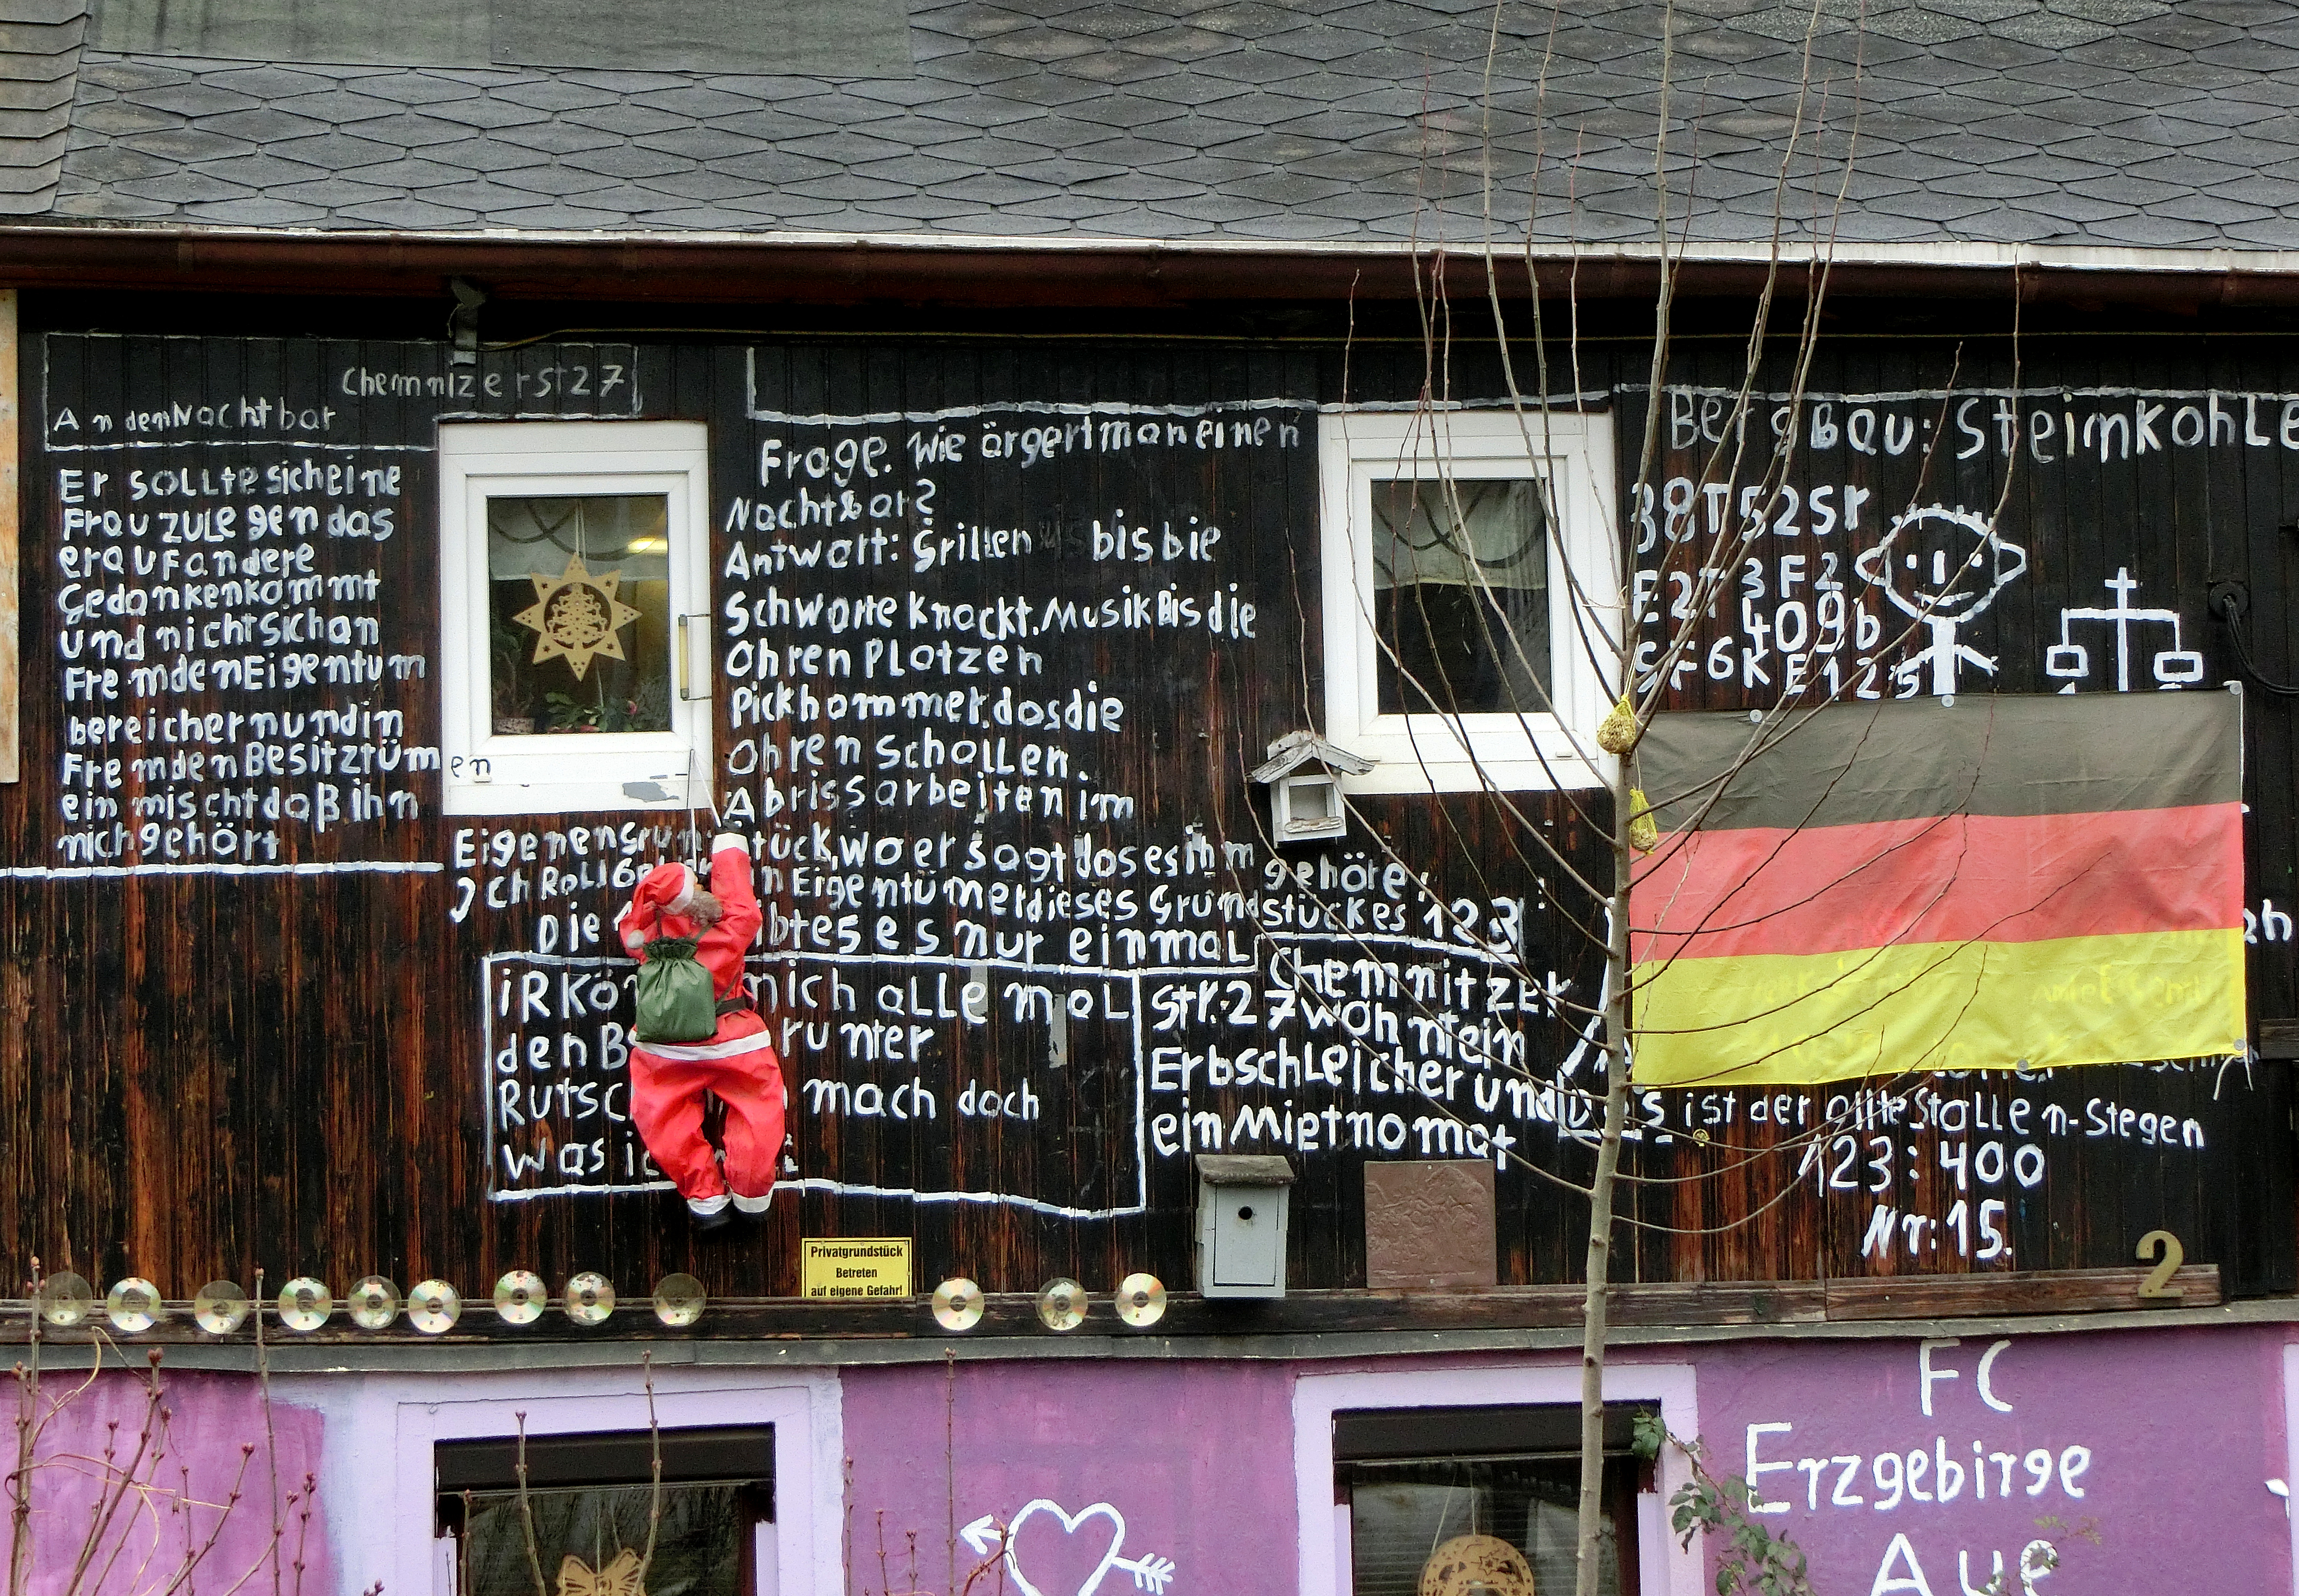 Chemnizerst27
An denNachtbar
Er sollte sich eine
Frau zulegen das
er auf andere
Gedankenkommt
und nicht sich an
FremdenEigentum
bereichern und in
Fremden Besitztümen
ein mischt daß ihn
nich gehört
Frage. Wie ärgert man einen
Nachtbar?
Antwort: Grillen bis bie
Schwarte knackt. Musik Bis die
Ohren Platzen
Pickhammer, das die
Ohren schallen.
Abrissarbeiten im
wo er sagt das es ihm gehöre,
Eigentümer dieses Grundstückes 123
Die es nur einmal
iR mich alle mal
den runter
mach doch
Was
Chemnitzer
Str. 27 wohnt ein
Erbschleicher und
ein Mietnomat
BergBau: Steinkohle
38T52Sr
E2T3F2
409b
SF6KE125
ist der alte Stollen-Stegen
123:400
Nr:15.
2
Privatgrundstück
Betreten
auf eigene Gefahr!
FC
Erzgebirge
Aue